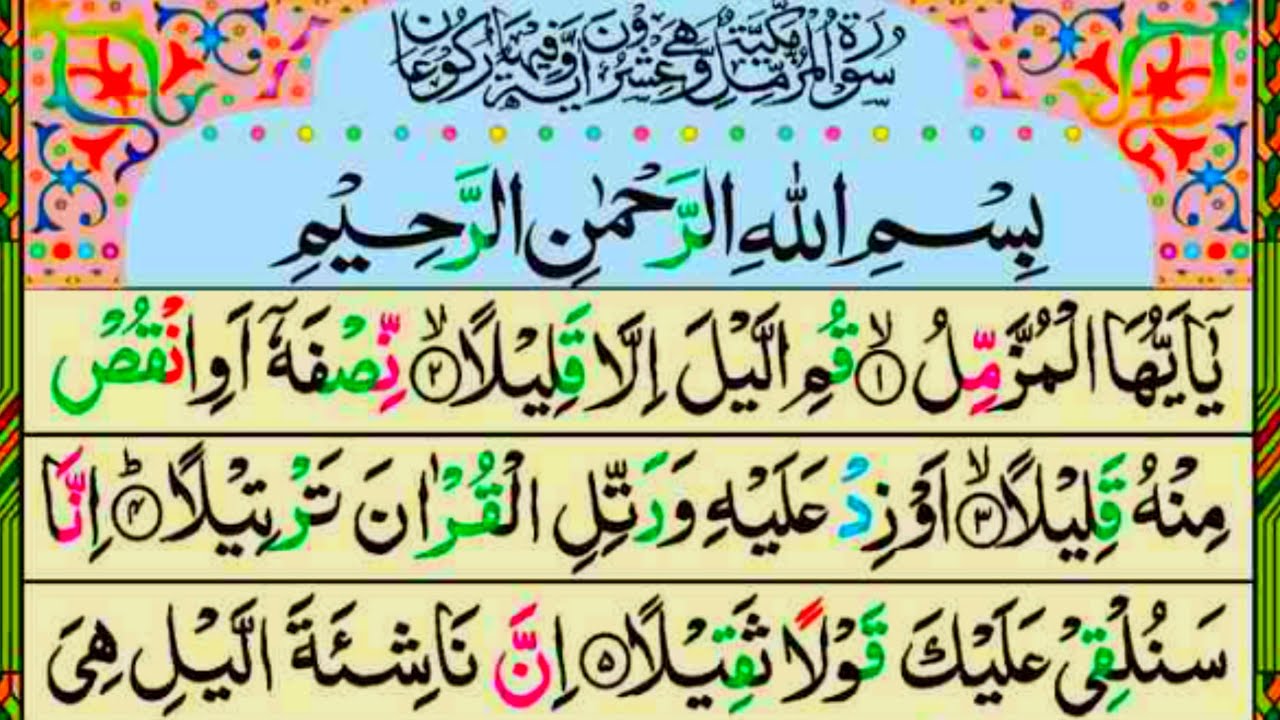 سُوْرَةُ الْمُزَّمِّلِ مَكِّيَّةٌ وَّهِيَ عِشْرُوْنَ اٰيَةً وَّفِيْهَا رُكُوْعَانِ
بِسْمِ اللّٰهِ الرَّحْمٰنِ الرَّحِيْمِ
يٰۤاَيُّهَا الْمُزَّمِّلُ ۙ‏﴿۱﴾ قُمِ الَّيْلَ اِلَّا قَلِيْلًا ۙ‏﴿۲﴾ نِّصْفَهٗۤ اَوِ انْقُصْ
مِنْهُ قَلِيْلًا ۙ‏﴿۳﴾ اَوْ زِدْ عَلَيْهِ وَرَتِّلِ الْقُرْاٰنَ تَرْتِيْلًا ؕ‏﴿۴﴾ اِنَّا
سَنُلْقِيْ عَلَيْكَ قَوْلًا ثَقِيْلًا ﴿۵﴾ اِنَّ نَاشِئَةَ الَّيْلِ هِيَ